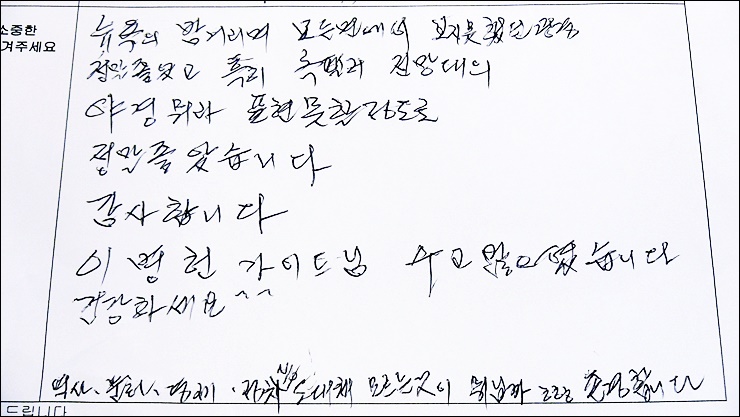 소중한
겨주세요
뉴욕의 밤거리며 모든면에서 보지못했던 광경
정말 좋았고 특히 록펠러 전망대의
야경 뭐라 표현못할정도로
정말좋았습니다
감사합니다
이병헌 가이드님 수고 많으셨습니다
건강하세요 ^^
역사, 문화, 경제, 도대체 모르는것이 뭡니까 존경합니다
드립니다